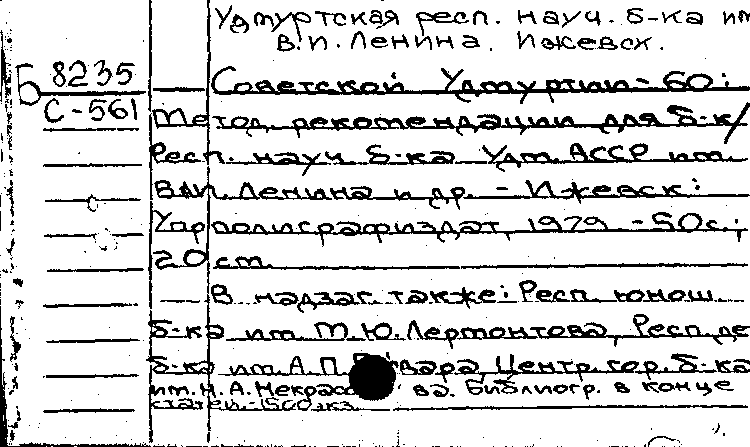 Удмуртская респ. науч. б-ка им
В.И. Ленина. Ижевск.
Б 8235
С-561
Советской Удмуртии - 60:
Метод. рекомендации для б-к/
Респ. науч б-ка Удм. АССР им.
В.И. Ленина и др. - Ижевск:
Удрполиграфиздат, 1979 - 50с.;
20 cm.
В надзаг. также: Респ. юнош.
б-ка им. М.Ю. Лермонтова, Респ. де
б-ка им. А.П. Центр. гор. б-ка
им. Н.А. ва. Библиогр. в конце
статей - 1500 экз.